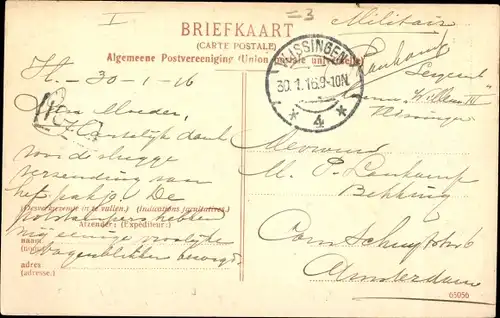 I
=3
Militair
BRIEFKAART
(CARTE POSTALE)
Algemeene Postvereeniging (Union postale universelle)
VLISSINGEN
30.1.16.9-10N
* 4 *
Lankamp
Sergeant
Willem III
Vlissingen
Vl. 30-1-16
Moeder,
Hartelijk dank
voor de vlugge
verzending van
het pakje. De
(Bestemd om in te vullen.) (Indications facultatives.)
hebben
Afzender: (Expéditeur:)
mij eenige vroolijke
naam:
oogenblikken bezorgd.
adres:
(adresse.)
Mevrouw
M. P. Lankamp
Bekking
Com Schuytstr 6
Amsterdam
65056